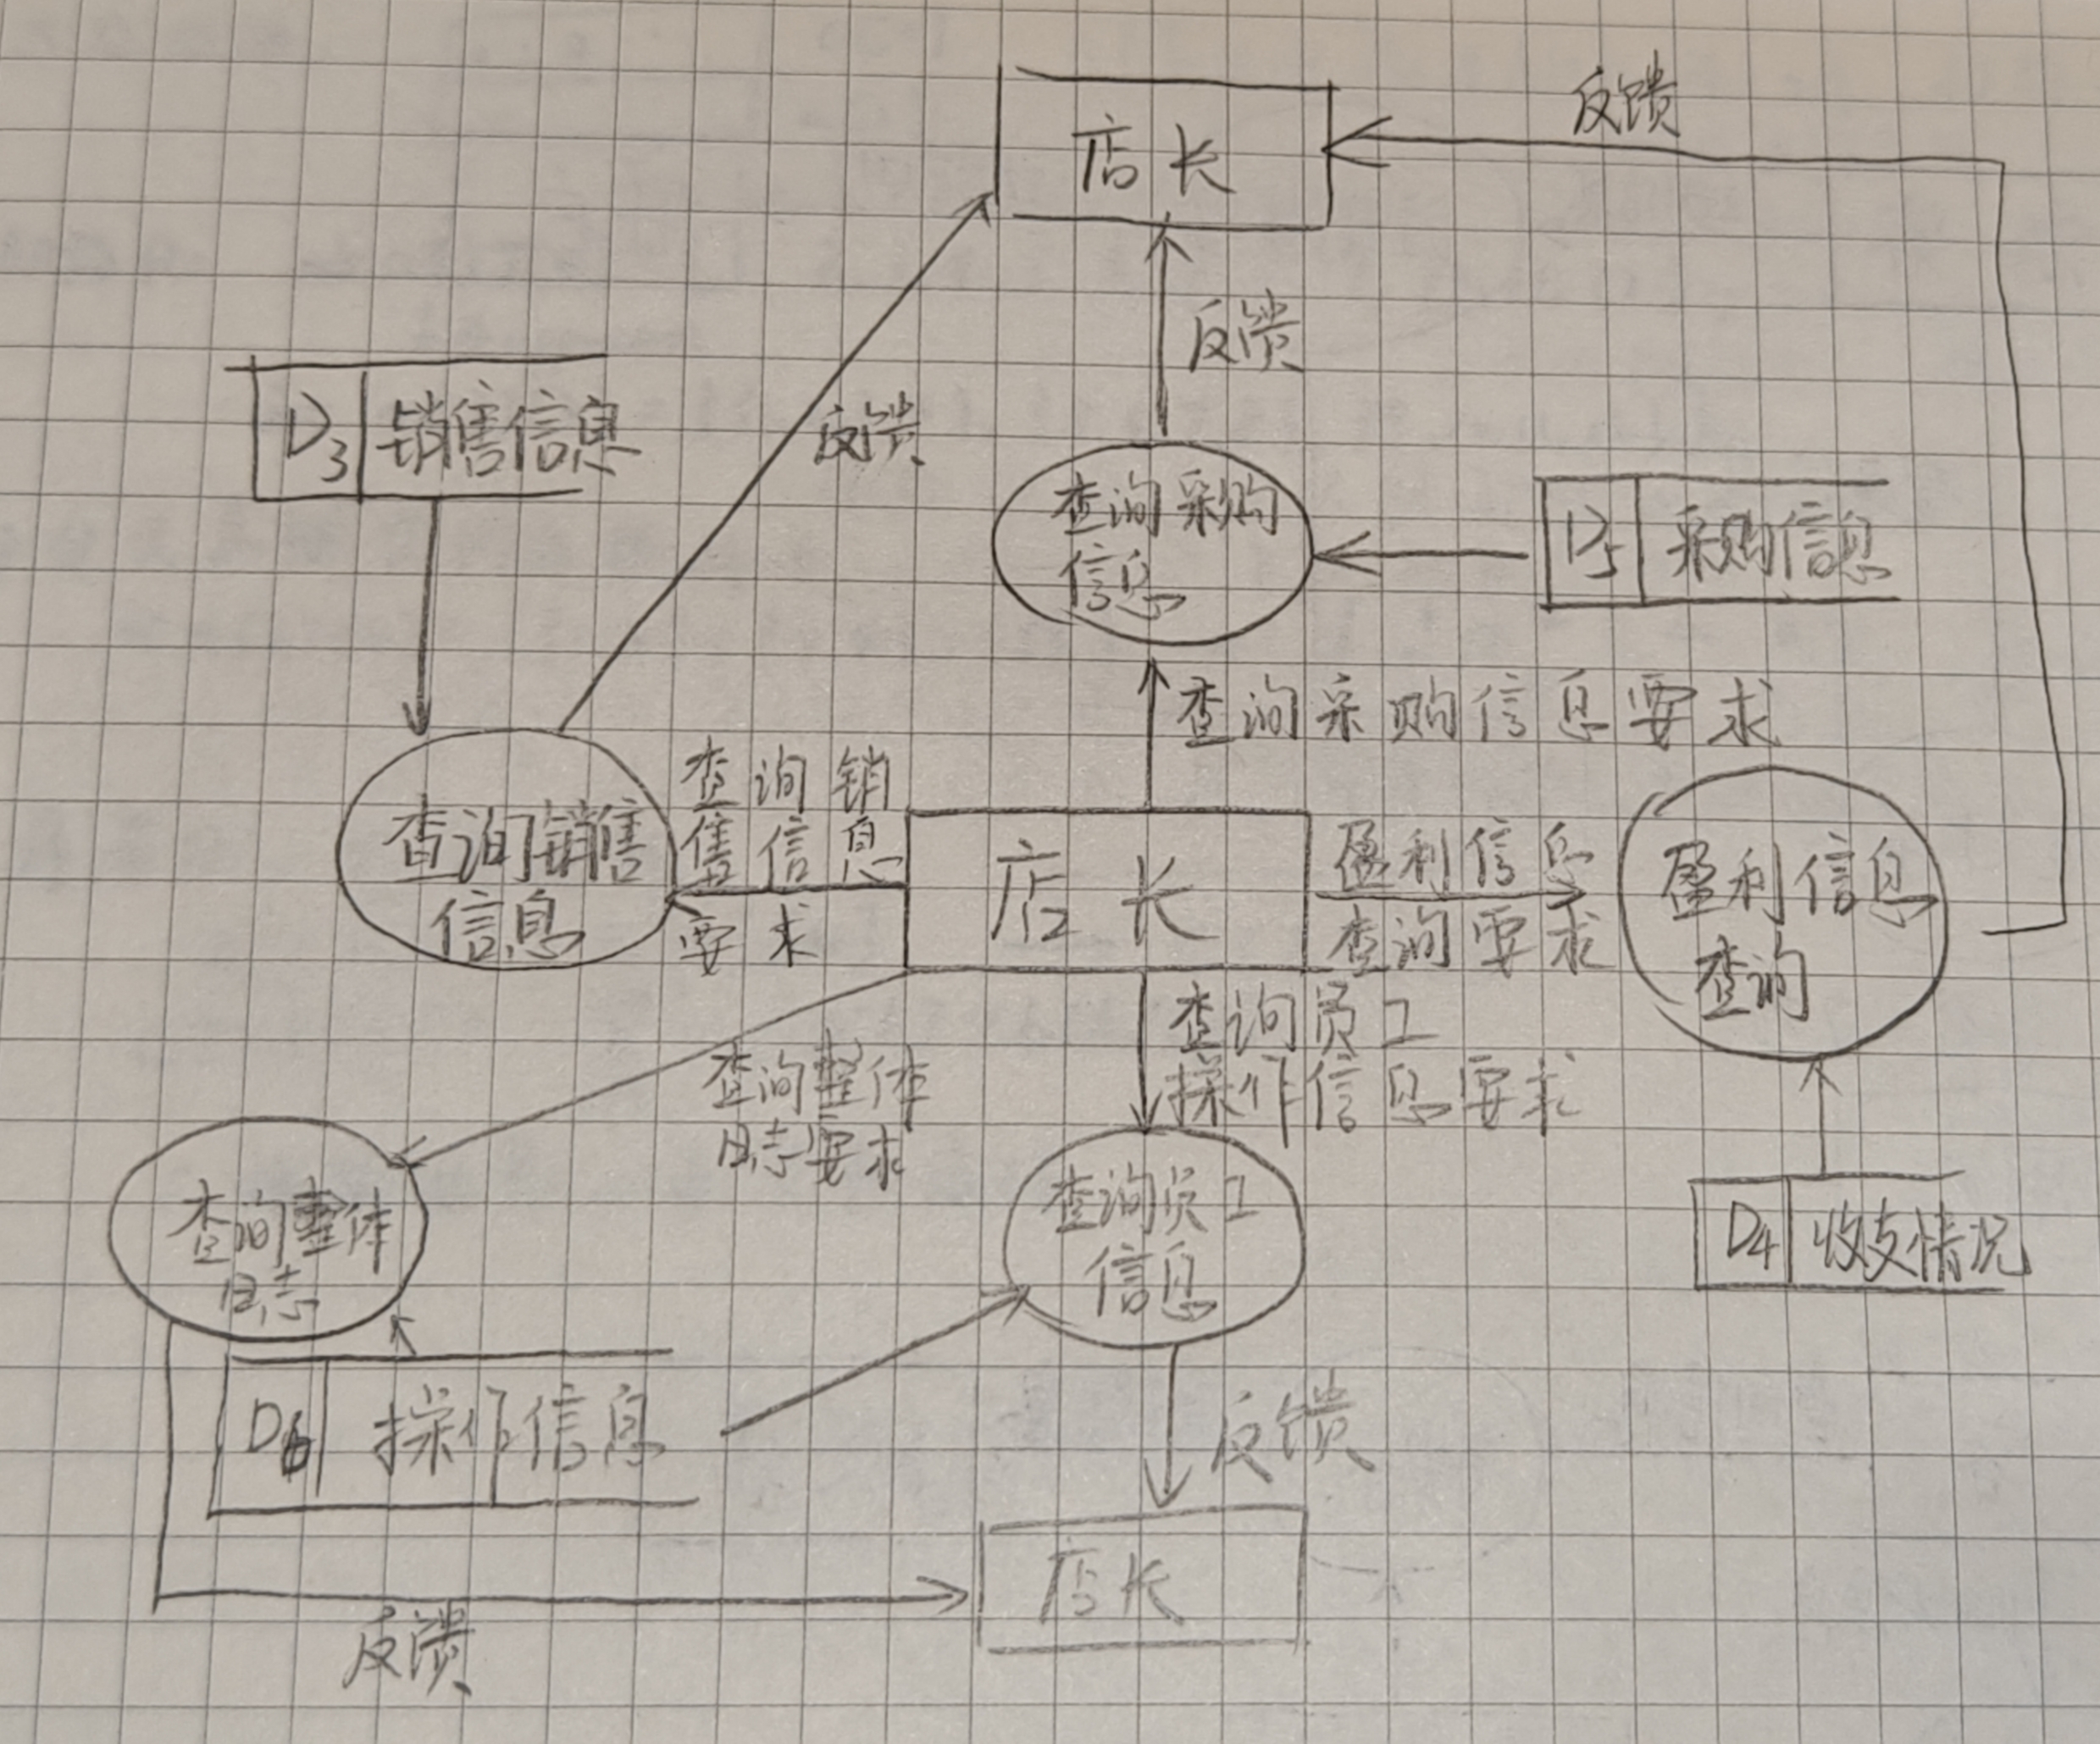 反馈
店长
反馈
D3 销售信息
反馈
查询采购
信息
D5 采购信息
查询采购信息要求
查询销
售信息
要求
查询销售
信息
店长
盈利信息
查询要求
盈利信息
查询
查询员工
操作信息要求
查询整体
日志要求
查询整体
日志
查询员工
信息
D4 收支情况
D6 操作信息
反馈
店长
反馈